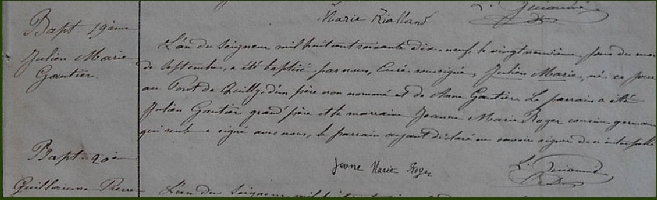 Marie Rialland
Bapt 19ème
Julien Marie
Gautier
L'an du Seigneur mil huit cent soixante dix-neuf le vingt neuvième jour du mois
de Septembre, a été baptisé par nous, Curé soussigné, Julien Marie, né ce jour
au Pont de Quilly, d'un père non nommé et de Anne Gautier. Le parrain a été
Julien Gautier grand'père et la marraine Jeanne Marie Roger cousine germaine
qui seule a signé avec nous, le parrain ayant déclaré ne savoir signer de ce interpellé
Jeanne Marie Roger
Bapt 20ème
Guillaume Pierre
L'an du Seigneur mil huit